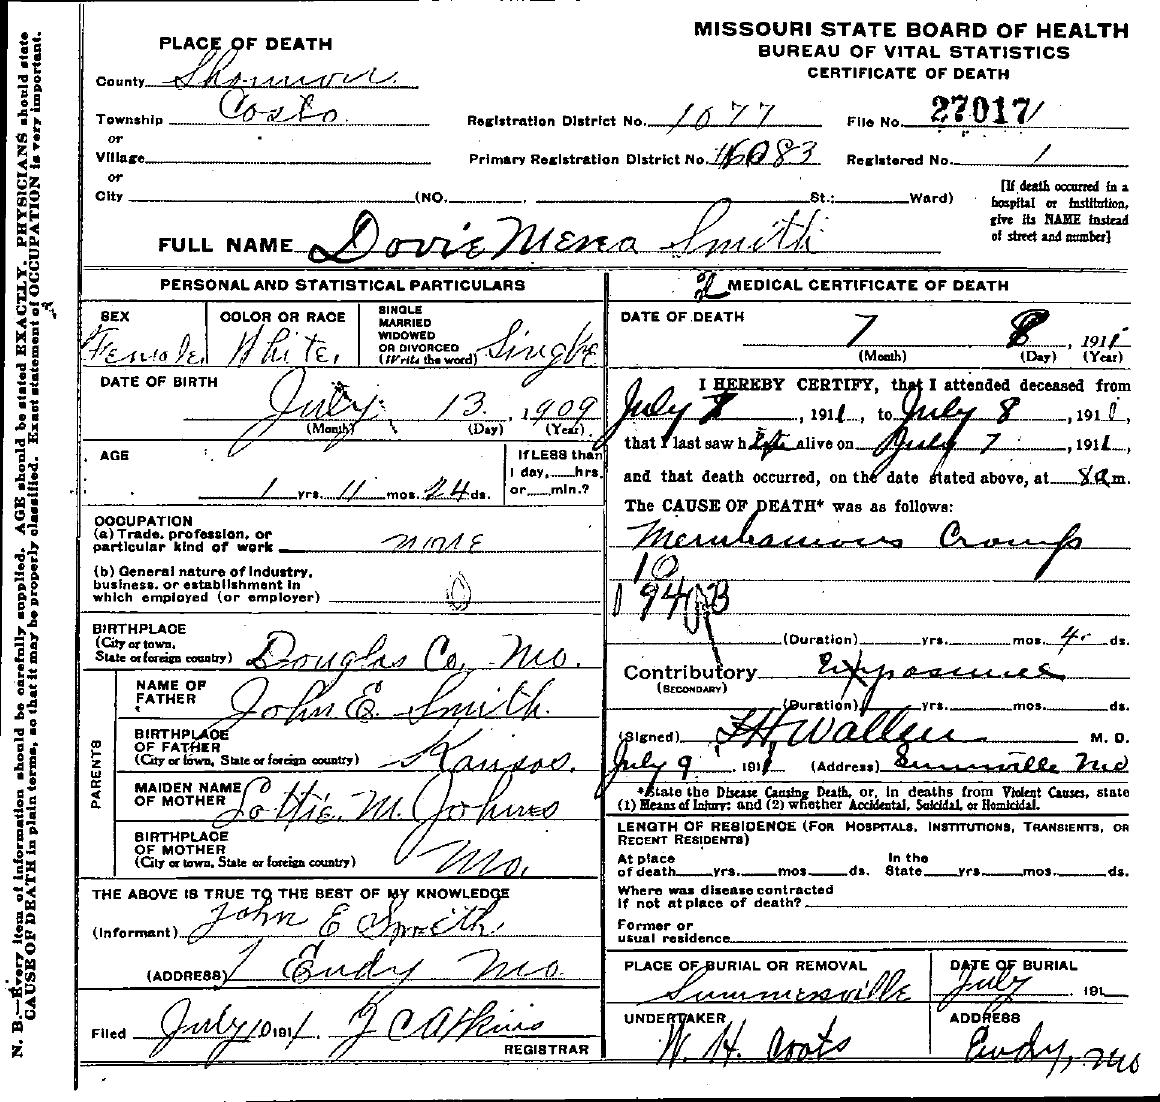 MISSOURI STATE BOARD OF HEALTH
BUREAU OF VITAL STATISTICS
CERTIFICATE OF DEATH
PLACE OF DEATH
County Shannon
Township
or
Village
or
City (NO. St.; Ward)
Registration District No. 1077 File No. 27017
Primary Registration District No. Registered No. 1
[If death occurred in a
hospital or institution,
give its NAME instead
of street and number]
FULL NAME Dovie Smith
PERSONAL AND STATISTICAL PARTICULARS
SEX
Female.
COLOR OR RACE
White.
SINGLE
MARRIED
WIDOWED
OR DIVORCED
(Write the word) Single
DATE OF BIRTH
July 13, 1909
(Month) (Day) (Year)
AGE
1 yrs. 11 mos. 24 ds.
If LESS than
1 day, hrs.
or min.?
OCCUPATION
(a) Trade, profession, or
particular kind of work none
(b) General nature of industry,
business, or establishment in
which employed (or employer) 0
BIRTHPLACE
(City or town,
State or foreign country) Douglas Co, Mo.
PARENTS
NAME OF
FATHER John E. Smith.
BIRTHPLACE
OF FATHER
(City or town, State or foreign country) Kansas.
MAIDEN NAME
OF MOTHER Lottie. M.
BIRTHPLACE
OF MOTHER
(City or town, State or foreign country) Mo.
THE ABOVE IS TRUE TO THE BEST OF MY KNOWLEDGE
(Informant) John E Smith.
(ADDRESS) Eudy Mo.
Filed July 10 1911
REGISTRAR
MEDICAL CERTIFICATE OF DEATH
DATE OF DEATH
7 8, 1911
(Month) (Day) (Year)
I HEREBY CERTIFY, that I attended deceased from
July , 1911, to July 8, 1911,
that I last saw h alive on July 7, 1911,
and that death occurred, on the date stated above, at 8 a m.
The CAUSE OF DEATH* was as follows:
Membranous Croup
10
(Duration) yrs. mos. 4 ds.
Contributory Exposure
(SECONDARY)
(Duration) yrs. mos. ds.
(Signed) M. D.
July 9, 1911 (Address) Mo
*State the Disease Causing Death, or, in deaths from Violent Causes, state
(1) Means of Injury; and (2) whether Accidental, Suicidal, or Homicidal.
LENGTH OF RESIDENCE (FOR HOSPITALS, INSTITUTIONS, TRANSIENTS, OR
RECENT RESIDENTS)
At place In the
of death yrs. mos. ds. State yrs. mos. ds.
Where was disease contracted
If not at place of death?
Former or
usual residence
PLACE OF BURIAL OR REMOVAL
Summersville
DATE OF BURIAL
July 191
UNDERTAKER
W. H. Coats
ADDRESS
Eudy, Mo
N. B.—Every item of information should be carefully supplied. AGE should be stated EXACTLY. PHYSICIANS should state
CAUSE OF DEATH in plain terms, so that it may be properly classified. Exact statement of OCCUPATION is very important.